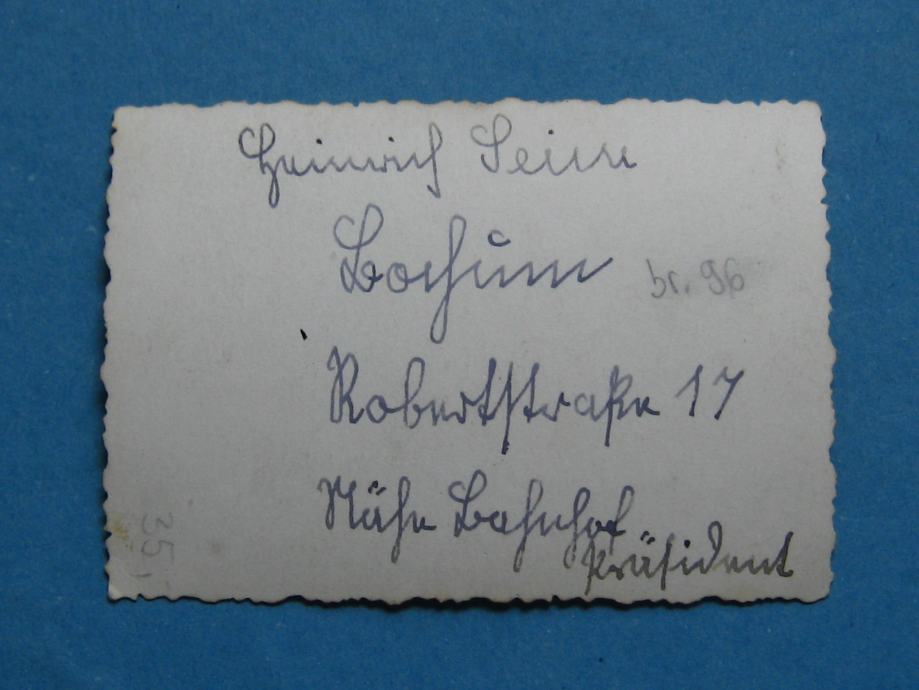 Heinrich
Bochum
br. 96
Robertstraße 17
Nähe Bahnhof
Präsident
35,